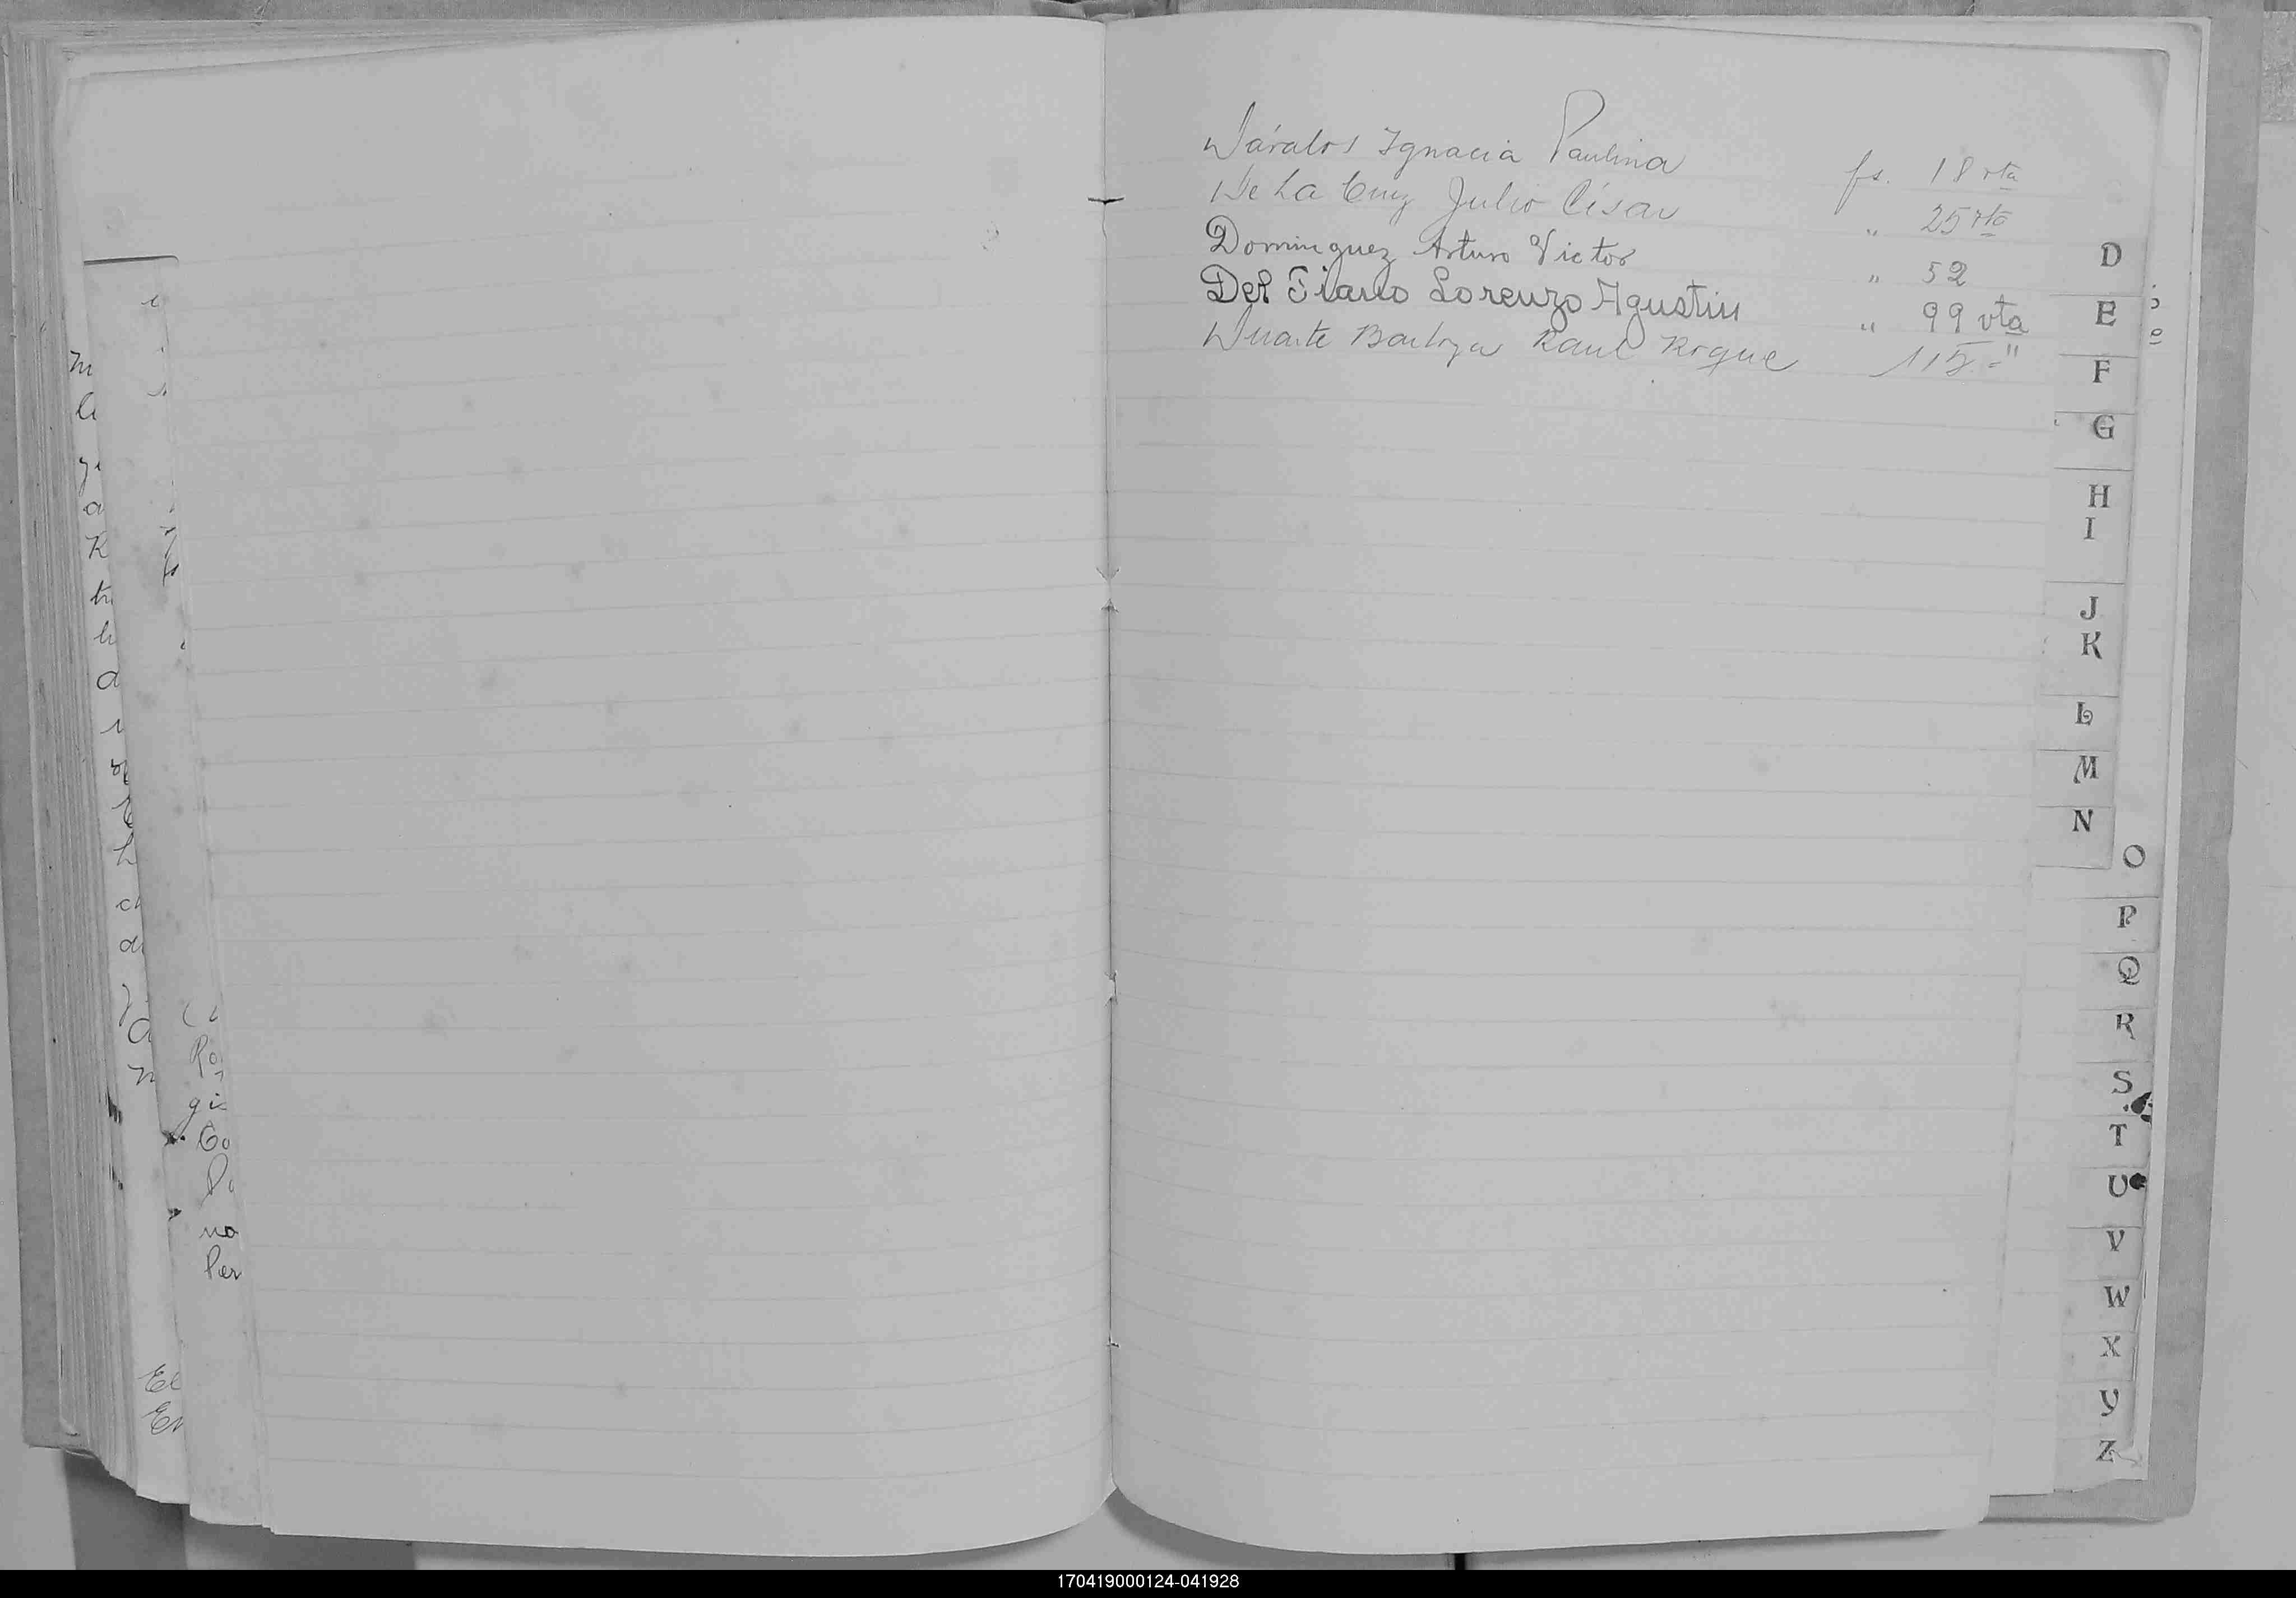 Dávalos Ignacia Paulina fs. 18 vta
De La Cruz Julio César " 25 vta
Dominguez Arturo Victor " 52
Del Tiano Lorenzo Agustin " 99 vta
Duarte Barboza Raul Roque 115 - "
D
E
F
G
H
I
J
K
L
M
N
O
P
Q
R
S
T
U
V
W
X
Y
Z
gi
Co
no
Per
El
En
170419000124-041928